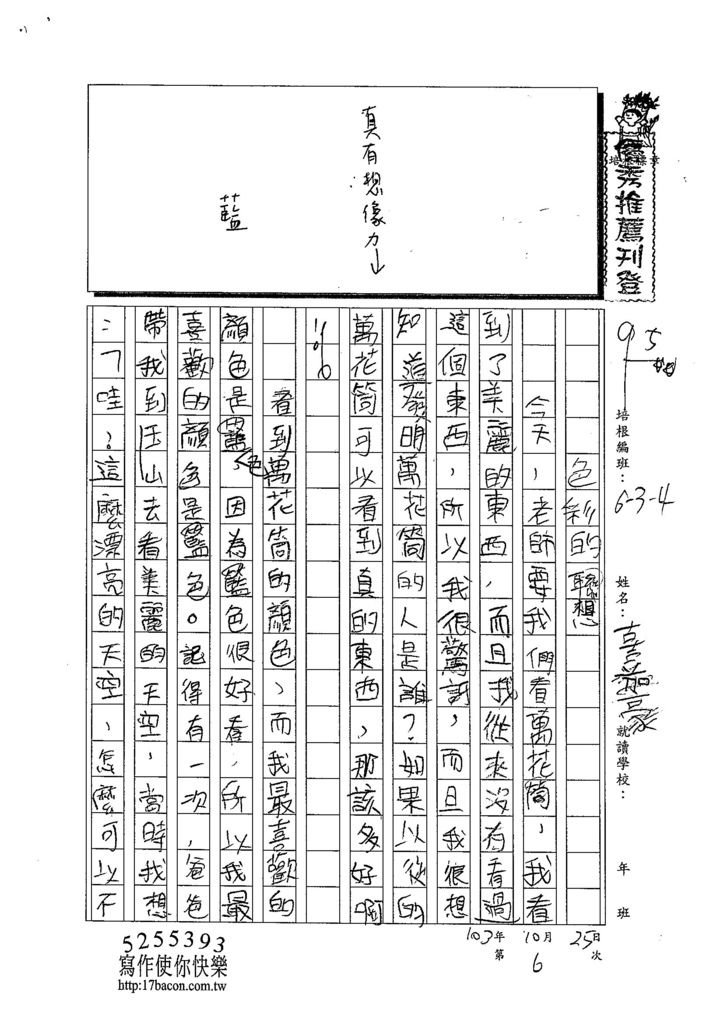 優秀推薦刊登
95
培根編班：6-3-4
姓名：
就讀學校：
年 班
103年10月25日
第6次
真有想像力↓
藍
色彩的聯想
今天，老師要我們看萬花筒，我看
到了美麗的東西，而且我從來沒有看過
這個東西，所以我很驚訝，而且我很想
知道發明萬花筒的人是誰？如果以後的
萬花筒可以看到真的東西，那該多好啊
看到萬花筒的顏色，而我最喜歡的
顏色是藍色，因為藍色很好看，所以我最
喜歡的顏色是藍色。記得有一次，爸爸
帶我到玉山去看美麗的天空，當時我想
：「哇！這麼漂亮的天空，怎麼可以不
5255393
寫作使你快樂
http:17bacon.com.tw